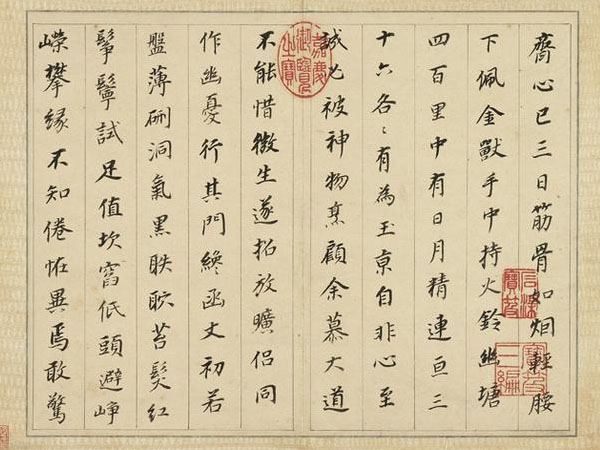 齋心已三日筋骨如烟輕腰
下佩金獸手中持火鈴幽塘
四百里中有日月精連亘三
十六各〻有為玉京自非心至
誠必被神物烹顧余慕大道
不能惜微生遂招放曠侶同
作幽憂行其門纔函丈初若
盤薄硎洞氣黑苔髮紅
鬇鬡試足值坎窞低頭避崢
嶸攀緣不知倦怪異焉敢驚
嘉慶御覽之寶
石渠寶笈
寶笈三編